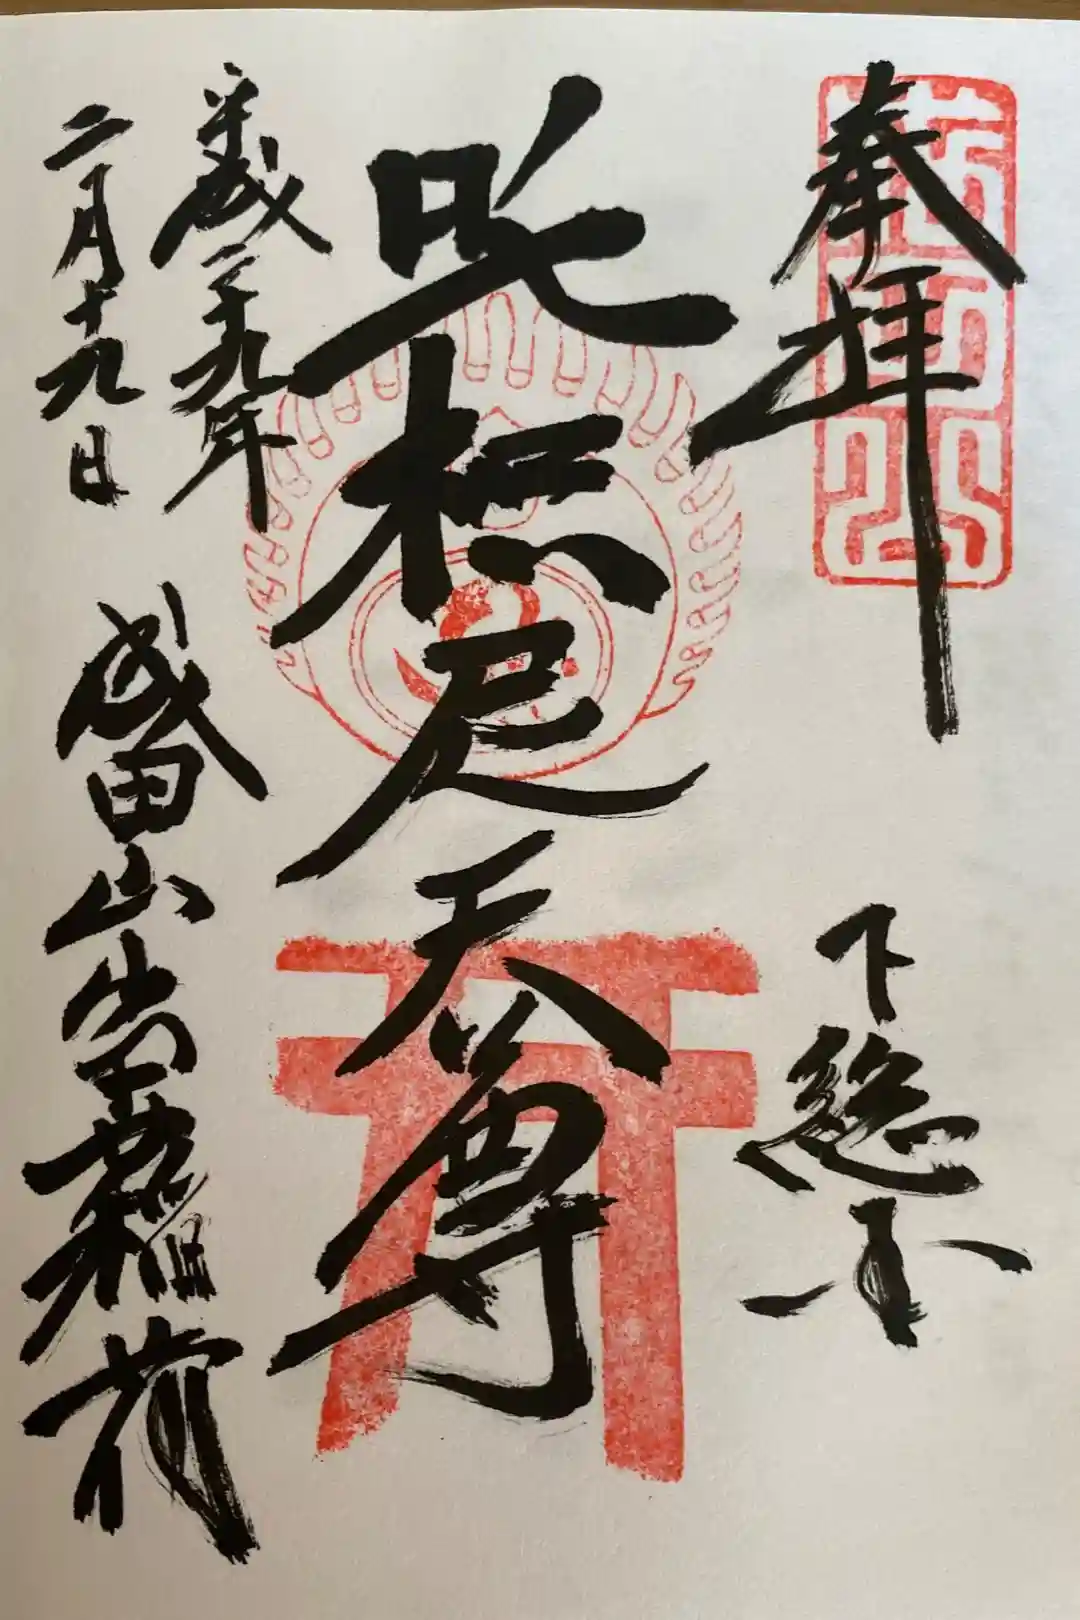 奉拝
下総
吒枳尼天尊
平成二十九年
二月十九日
成田山出世稲荷